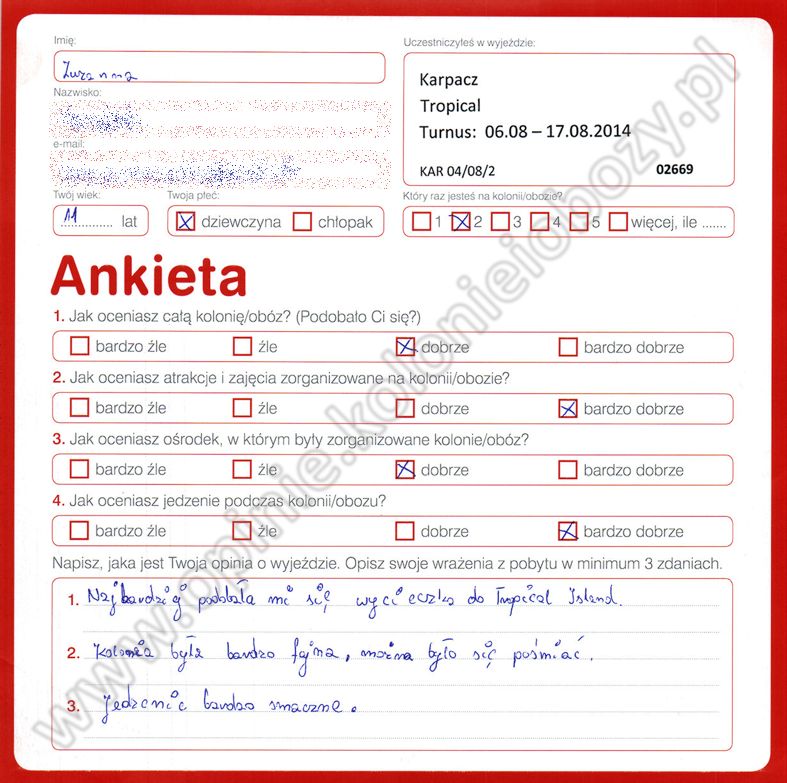 Imię:
Zuzanna
Nazwisko:
e-mail:
Twój wiek:
11 lat
Twoja płeć:
dziewczyna chłopak
Uczestniczyłeś w wyjeździe:
Karpacz
Tropical
Turnus: 06.08 – 17.08.2014
KAR 04/08/2 02669
Który raz jesteś na kolonii/obozie?
1 2 3 4 5 więcej, ile .......
Ankieta
1. Jak oceniasz całą kolonię/obóz? (Podobało Ci się?)
bardzo źle źle dobrze bardzo dobrze
2. Jak oceniasz atrakcje i zajęcia zorganizowane na kolonii/obozie?
bardzo źle źle dobrze bardzo dobrze
3. Jak oceniasz ośrodek, w którym były zorganizowane kolonie/obóz?
bardzo źle źle dobrze bardzo dobrze
4. Jak oceniasz jedzenie podczas kolonii/obozu?
bardzo źle źle dobrze bardzo dobrze
Napisz, jaka jest Twoja opinia o wyjeździe. Opisz swoje wrażenia z pobytu w minimum 3 zdaniach.
1. Najbardziej podobała mi się wycieczka do Tropical Island.
2. Kolonia była bardzo fajna, można było się pośmiać.
3. Jedzenie bardzo smaczne.
www.opinie.kolonieiobozy.pl